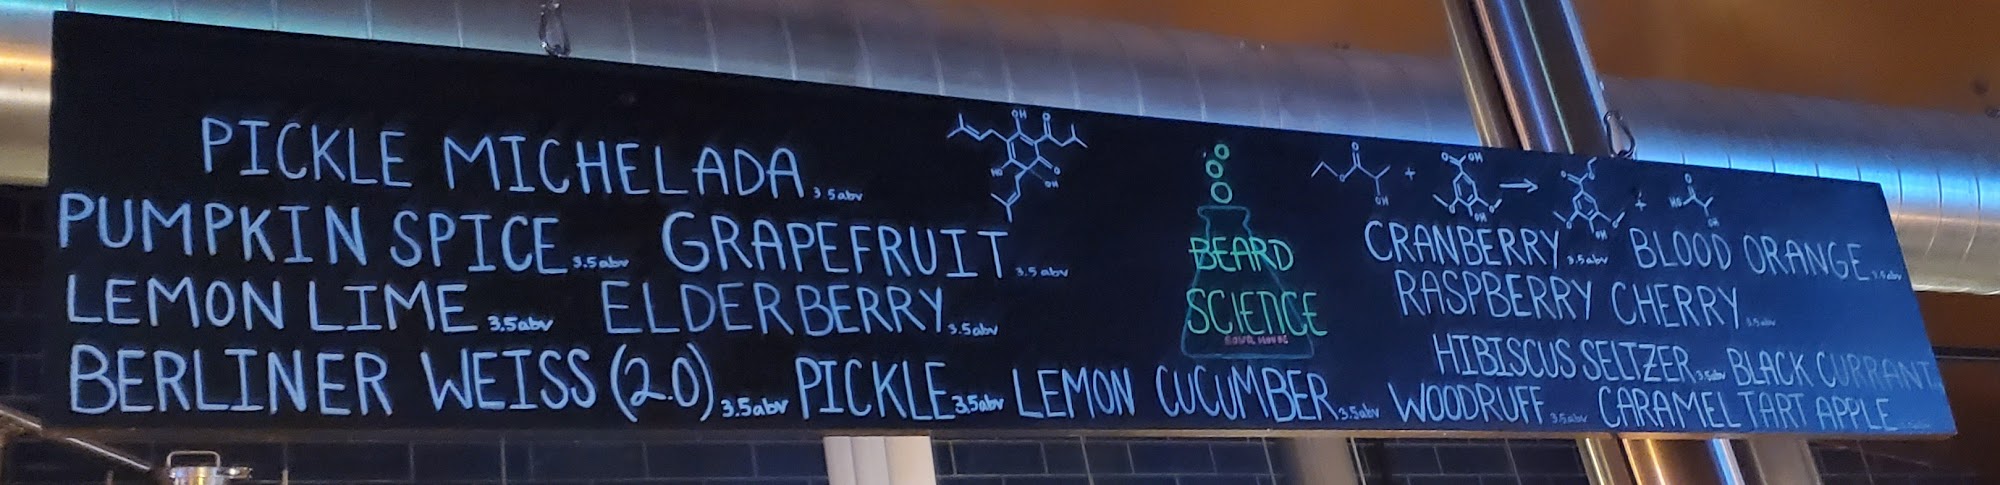 PICKLE MICHELADA 3.5abv
PUMPKIN SPICE 3.5abv GRAPEFRUIT 3.5abv
LEMON LIME 3.5abv ELDERBERRY 3.5abv
BERLINER WEISS (2.0) 3.5abv PICKLE 3.5abv LEMON CUCUMBER 3.5abv
BEARD
SCIENCE
SOUR HOUSE
CRANBERRY 3.5abv BLOOD ORANGE 3.5abv
RASPBERRY CHERRY 3.5abv
HIBISCUS SELTZER 3.5abv BLACK CURRANT
WOODRUFF 3.5abv CARAMEL TART APPLE